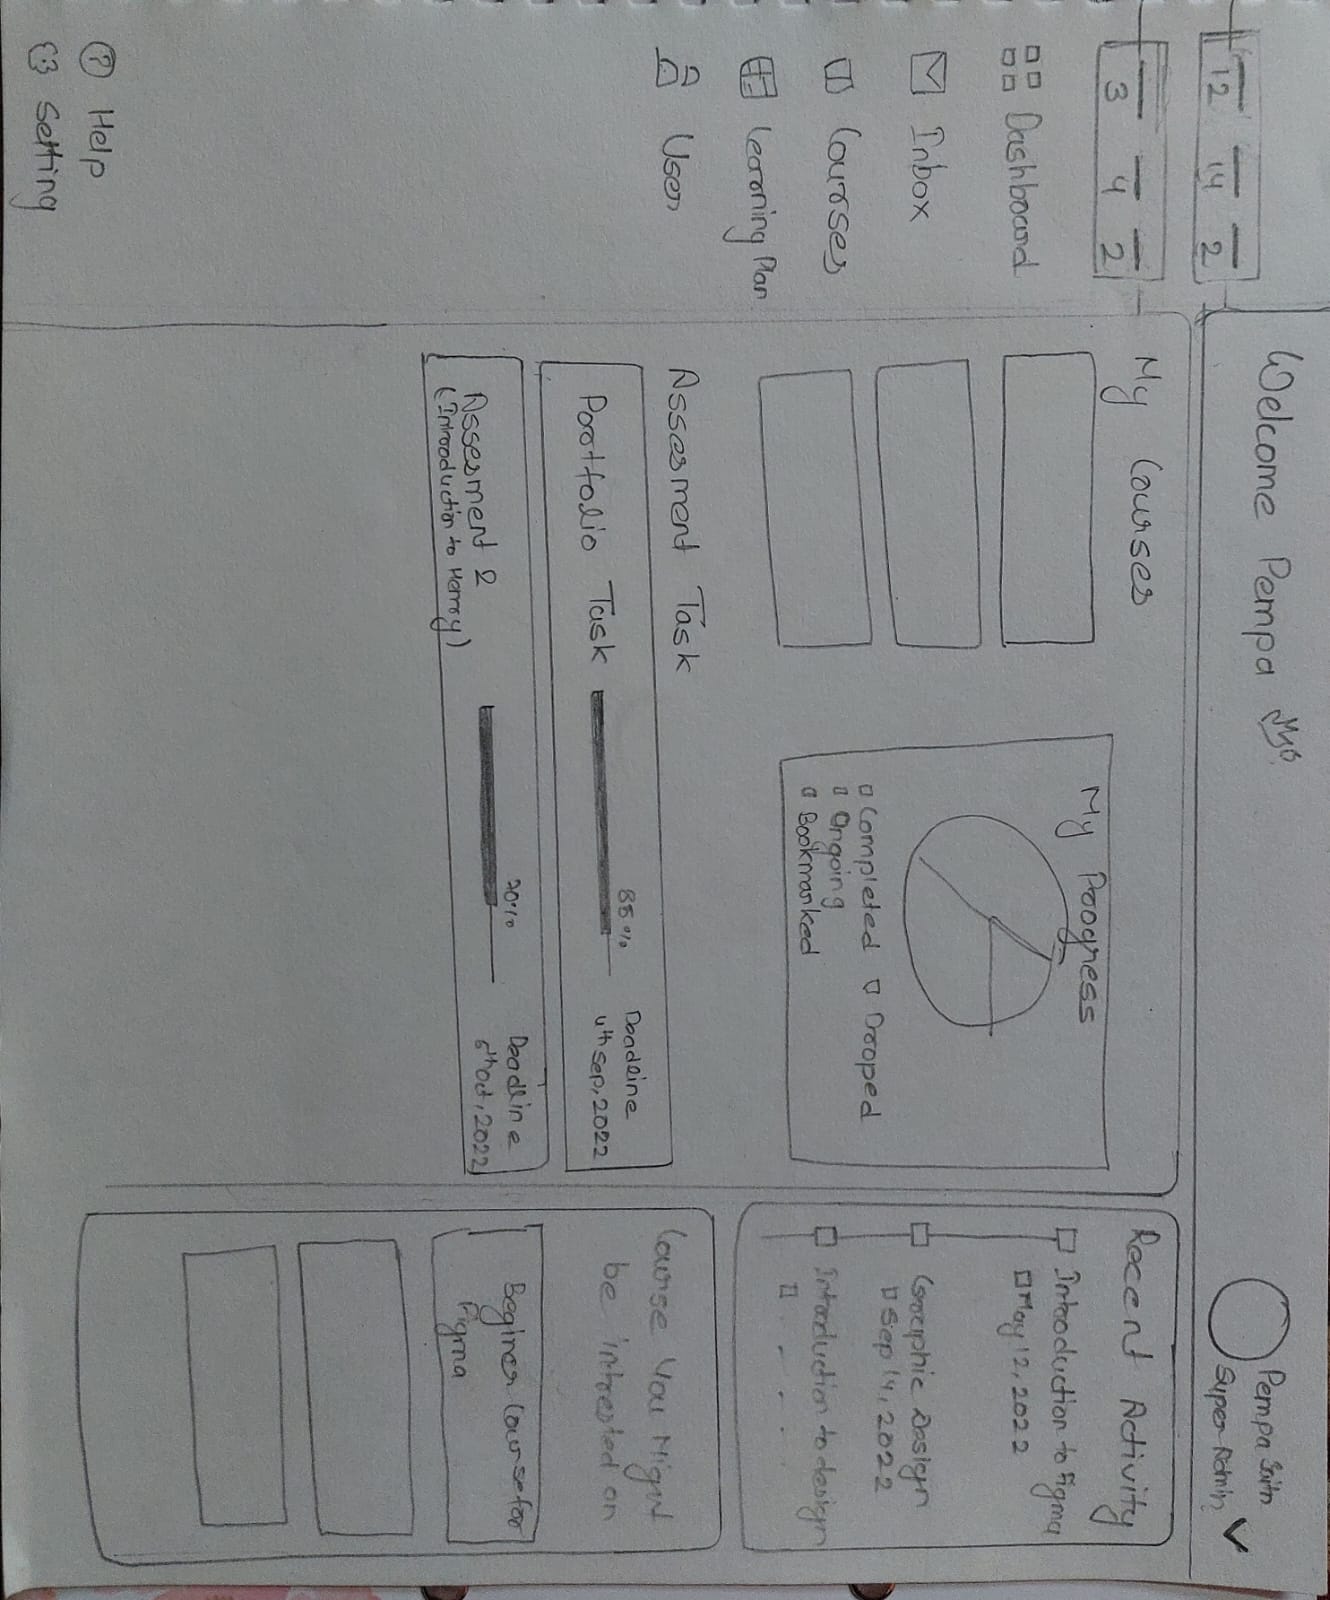 12 14 2
3 4 2
Dashboard
Inbox
Courses
Learning Plan
User
? Help
Setting
Welcome Pempa
Pempa
Super Admin
My Courses
My Progress
Completed Drooped
Ongoing
Bookmarked
Assesment Task
Portfolio Task 85% Deadline
4th Sep, 2022
Assesment 2 70% Deadline
(Introduction to Harmony) 6th Oct, 2022
Recent Activity
Introduction to Figma
May 12, 2022
Graphic Design
Sep 14, 2022
Introduction to design
Course You Might
be intrested on
Beginer Course for
Figma